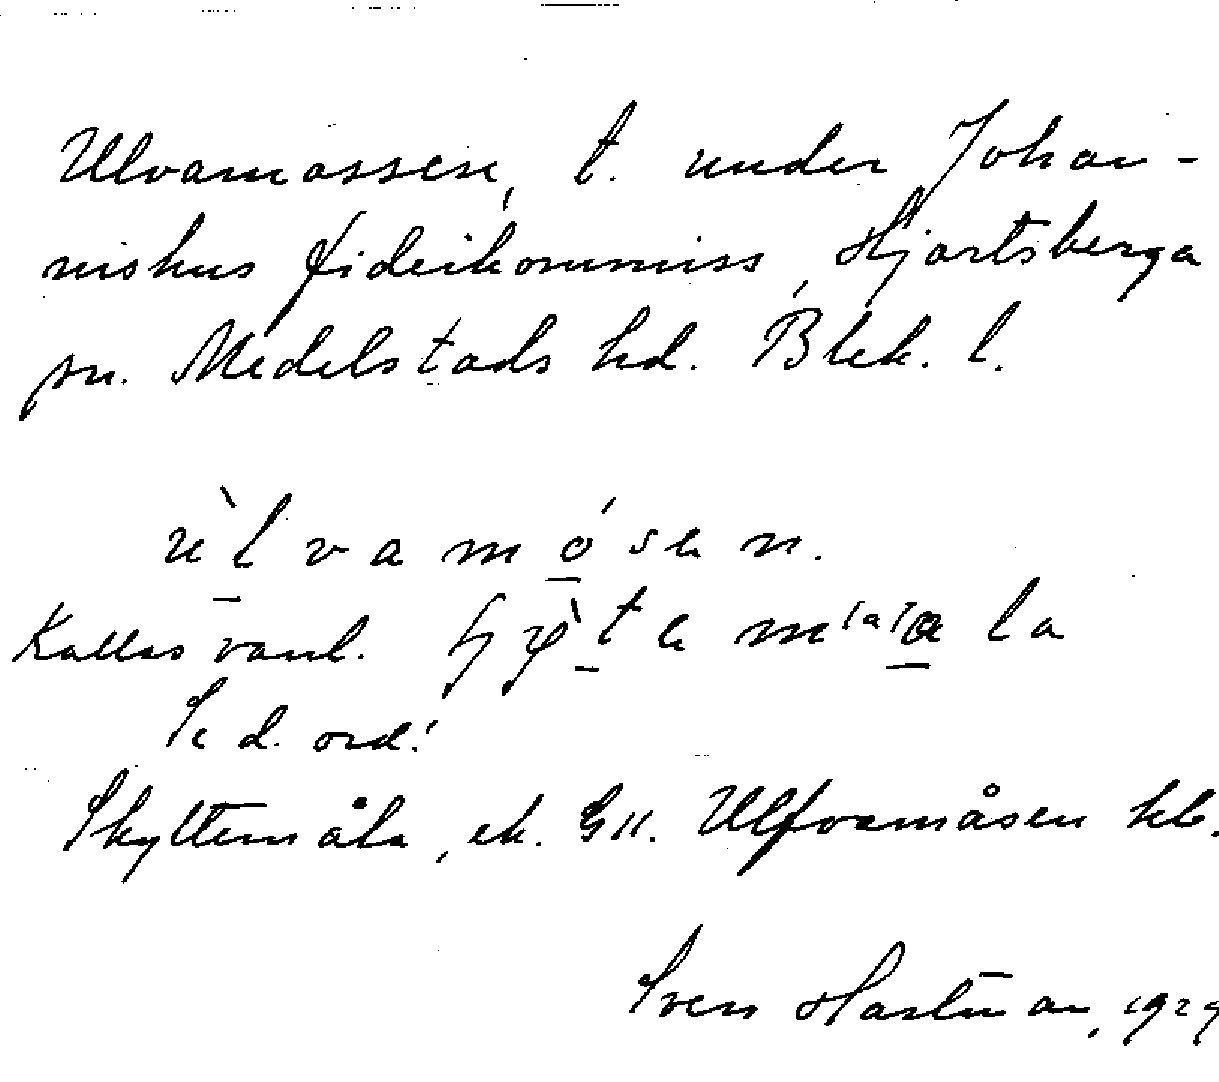 Ulvamossen, t. under Johan-
nishus fideikommiss, Hjortsberga
sn. Medelstads hd. Blek. l.
ùlvamósen.
Kallas vanl.
Se d. ord!
Skyttemåla, ek. G11. Ulfvamåsen hb.
Sven Hartman, 1929